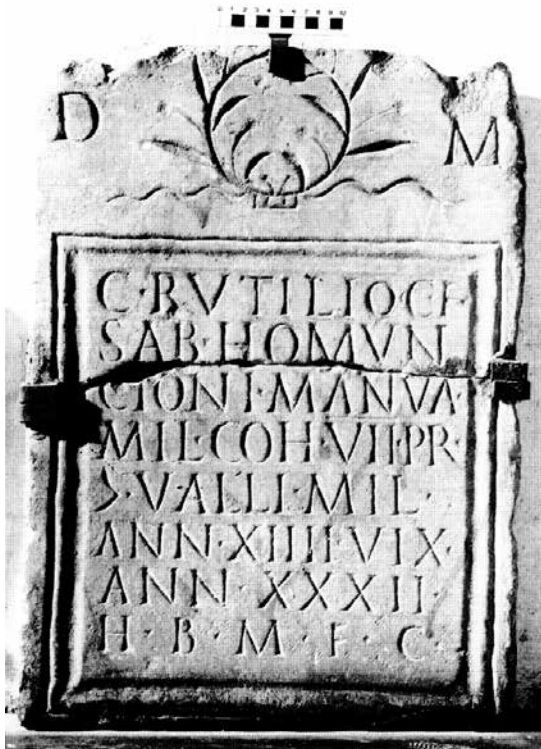 D M
C·RVTILIO·C·F
SAB·HOMVN
CIONI·MANVA·
MIL·COH·VII·PR·
>·VALLI·MIL·
ANN·XIIII·VIX·
ANN XXXII
H·B·M·F·C·